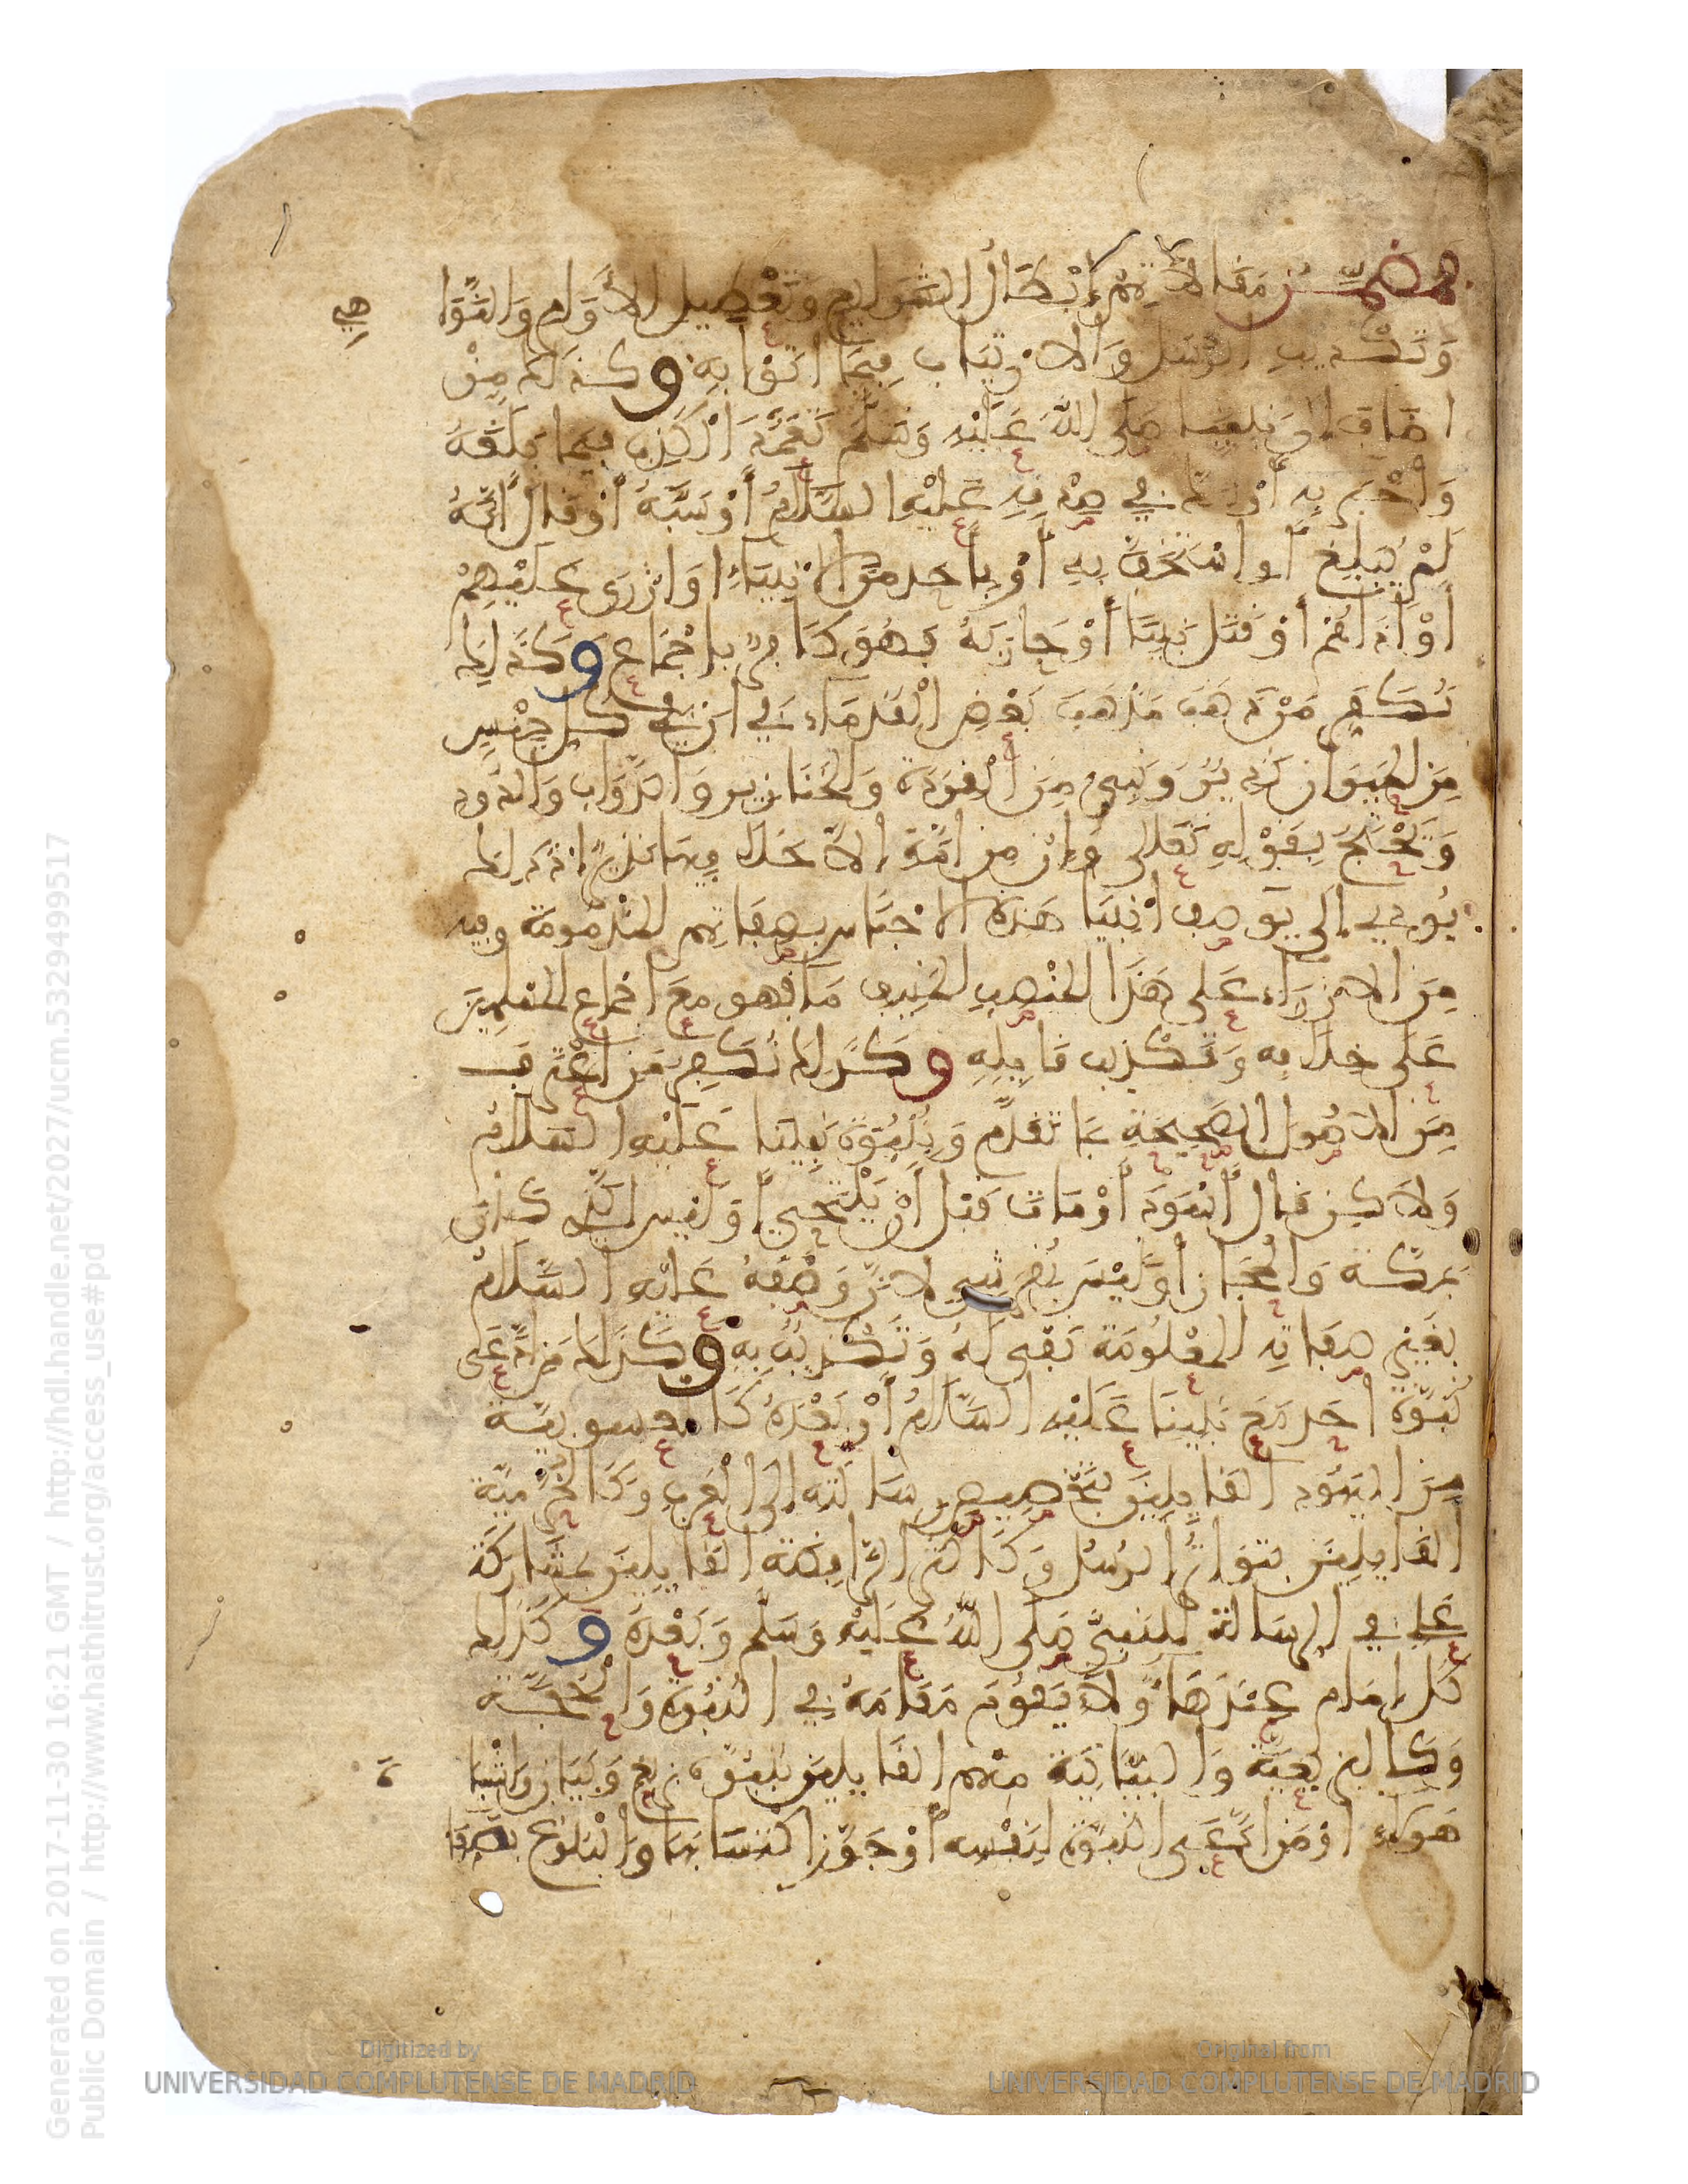 فمضمن مقالاتهم إبطال الشرايع وتعطيل الأوامر والنوا
هي
وتكذيب الرسل والارتياب فيما اتوا به وكذلك من
اضاف إلى نبينا صلى الله عليه وسلم تعمد الكذب فيما بلغه
وأخبر به أو شك في صدقه عليه السلام أو سبه أو قال إنه
لم يبلغ أو استخف به أو بأحد من الانبياء او ازرى عليهم
أو آذاهم أو قتل نبيا أو حاربه فهو كافر بإجماع وكذلك
نكفر من ذهب مذهب بعض القدماء في ان في كل جنس
من الحيوان نذيرا ونبيئ من القردة والخنازير والدواب والدود
ويحتج بقوله تعالى وإن من امة إلا خلا فيها نذير اذ ذلك
يودي إلى يوصف انبيا هذه الاجناس بصفاتهم المذمومة وفيه
من الازراء على هذا المنصب المنيف ما فهو مع اجماع المسلمين
على خلافه وتكذيب قايله وكذلك نكفر من اعترف
من الاصول الصحيحة بما تقدم وبنبوة نبينا عليه السلام
ولاكن قال أسود أو مات قبل أن يلتحي أو ليس الذي كان
بمكة والحجاز أو ليس بقرشي لان وصفه عليه السلام
بغير صفاته المعلومة نفي له وتكذيب به وكذلك من ادعى
نبوة احد مع نبينا عليه السلام أو بعده كالعيسوية
من اليهود القايلين بتخصيص رسالته إلى العرب وكالخرمية
القايلين بتواتر الرسل وكاكثر الرافضة القايلين بمشاركة
علي في الرسالة للنبي صلى الله عليه وسلم وبعده وكذلك
كل إمام عند هاولا يقوم مقامه في النبوة والحجة
وكالبزيغية والبيانية منهم القايلين بنبوة بزيغ وبيان واشباه
هولاء او من ادعى النبوة لنفسه أو جوز اكتسابها والبلوغ بصفا